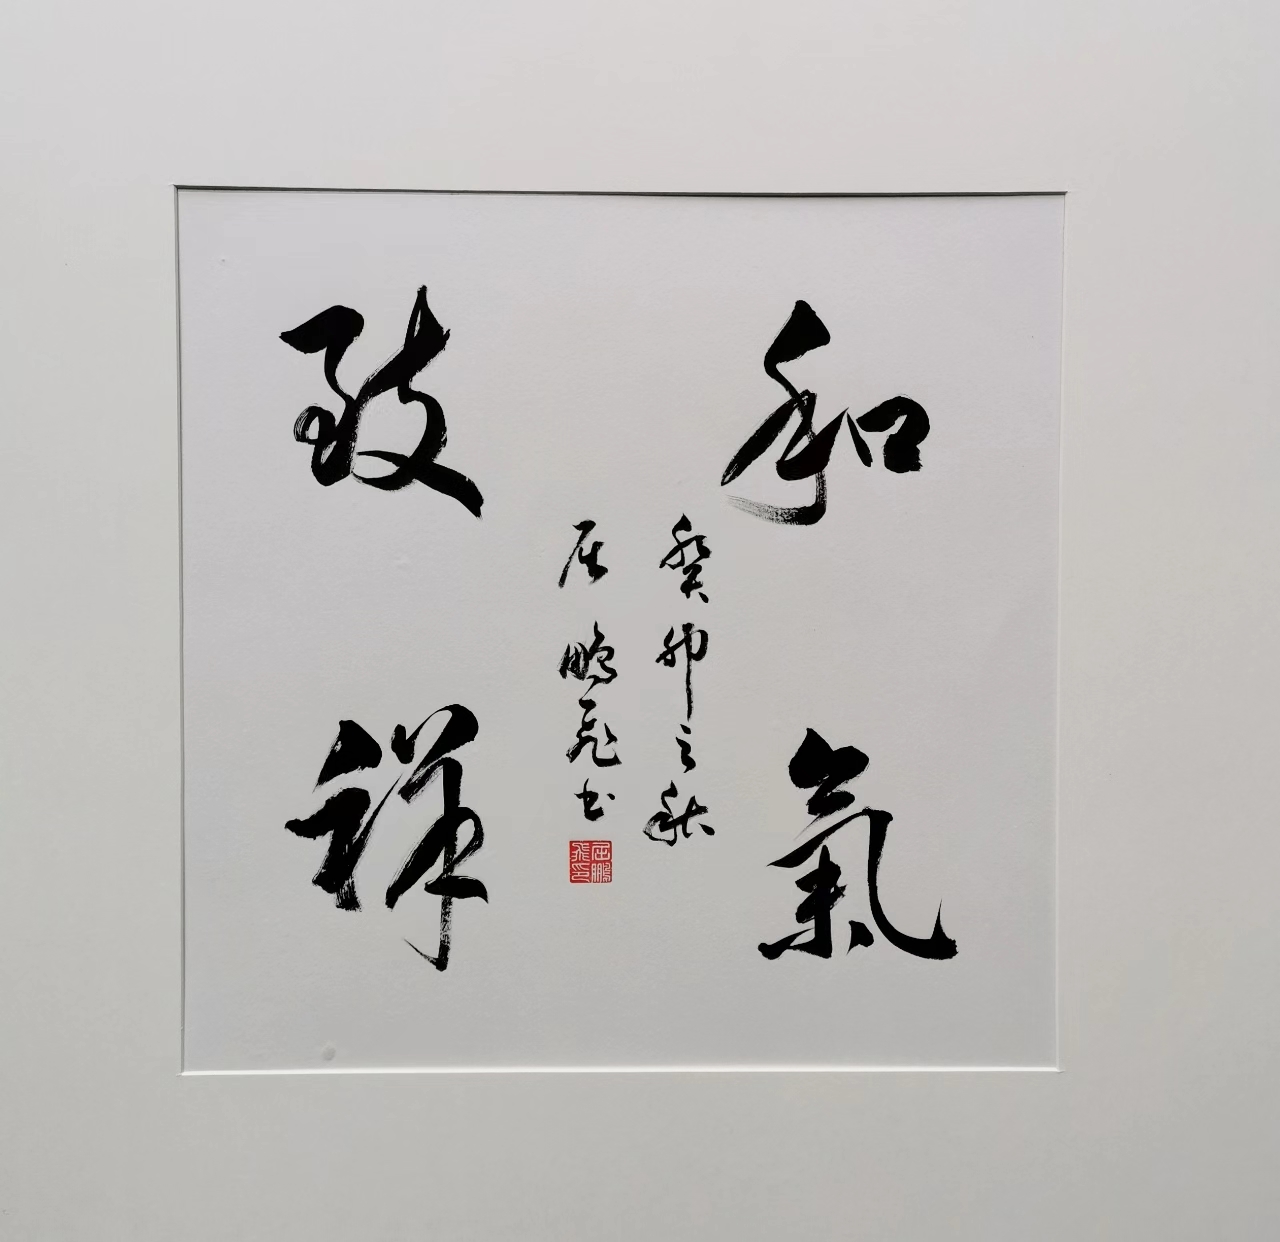 和氣
致祥
癸卯之秋
屈鵬飛书
屈鵬
飛印